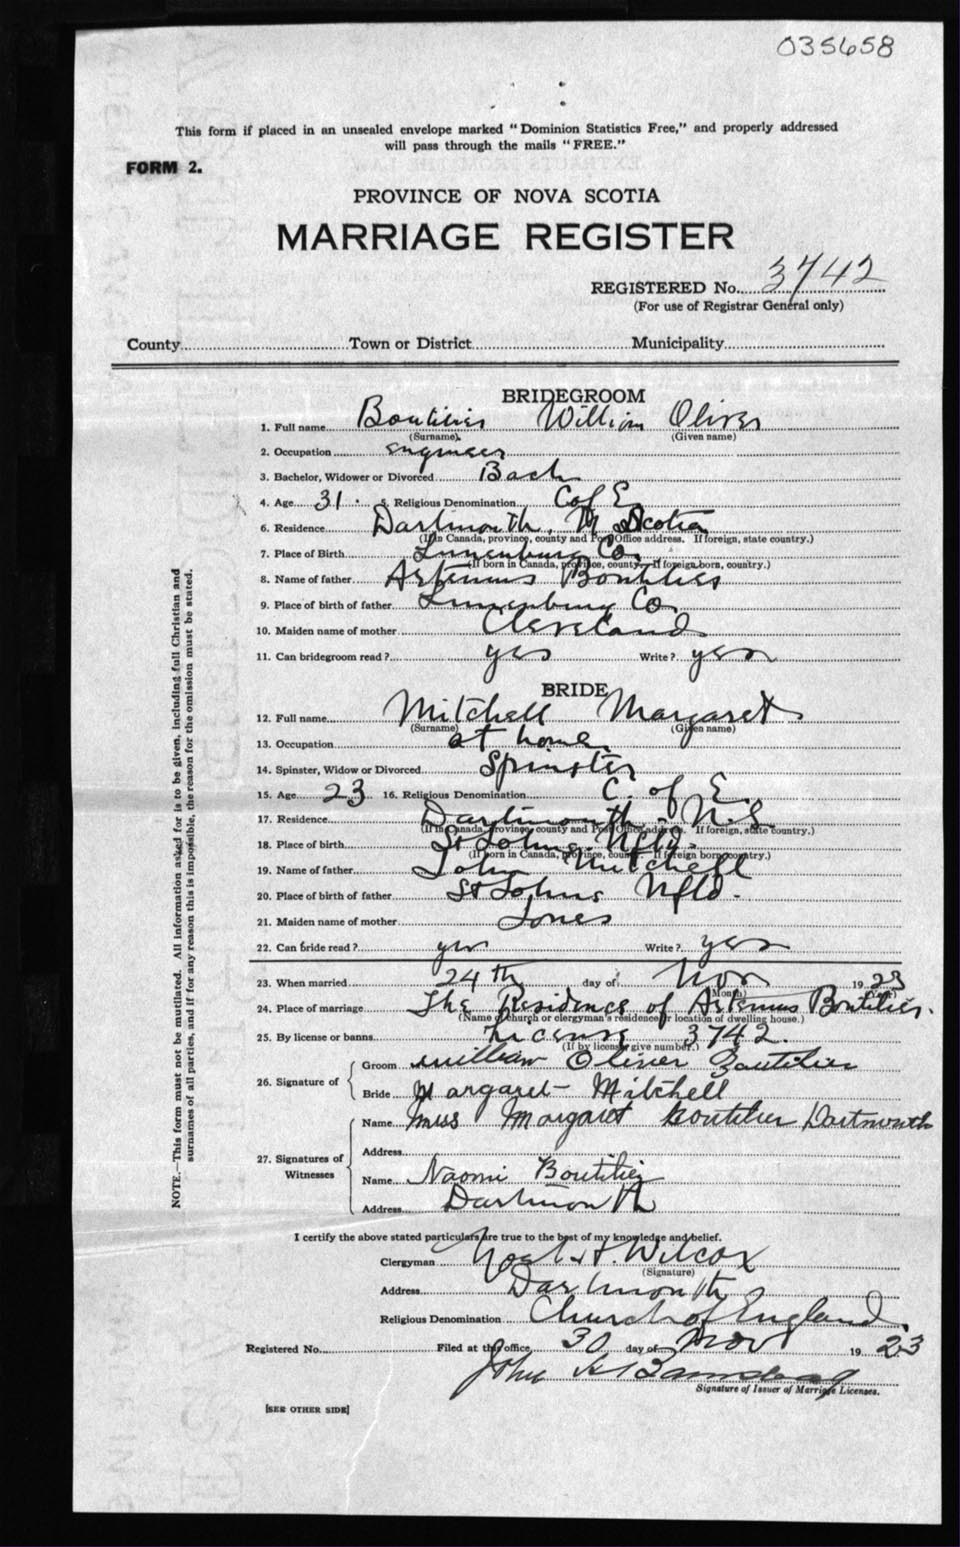 035658
This form if placed in an unsealed envelope marked "Dominion Statistics Free," and properly addressed
will pass through the mails "FREE."
FORM 2.
PROVINCE OF NOVA SCOTIA
MARRIAGE REGISTER
REGISTERED No. 3742
(For use of Registrar General only)
County Town or District Municipality
BRIDEGROOM
1. Full name Boutilier William Oliver
(Surname) (Given name)
2. Occupation engineer
3. Bachelor, Widower or Divorced Bach
4. Age 31 5. Religious Denomination C of E
6. Residence Dartmouth, N Scotia
(If in Canada, province, county and Post Office address. If foreign, state country.)
7. Place of Birth Lunenburg Co.
(If born in Canada, province, county. If foreign born, country.)
8. Name of father Artemus Boutilier
9. Place of birth of father Lunenburg Co
10. Maiden name of mother Cleveland
11. Can bridegroom read? yes Write? yes
BRIDE
12. Full name Mitchell Margaret
(Surname) (Given name)
13. Occupation at home
14. Spinster, Widow or Divorced Spinster
15. Age 23 16. Religious Denomination C. of E.
17. Residence Dartmouth N.S
(If in Canada, province, county and Post Office address. If foreign, state country.)
18. Place of birth St Johns Nfld.
(If born in Canada, province, county. If foreign born, country.)
19. Name of father John Mitchell
20. Place of birth of father St Johns Nfld.
21. Maiden name of mother Jones
22. Can bride read? yes Write? yes
23. When married 24th day of Nov 1923
(Month)
24. Place of marriage The Residence of Artemus Boutilier.
(Name of church or clergyman's residence or location of dwelling house.)
25. By license or banns License 3742.
(If by license give number.)
26. Signature of
Groom William Oliver Boutilier
Bride Margaret Mitchell
27. Signatures of Witnesses
Name Miss Margaret Boutilier Dartmouth
Address
Name Naomi Boutilier
Address Dartmouth
I certify the above stated particulars are true to the best of my knowledge and belief.
Clergyman Noel H. Wilcox
(Signature)
Address Dartmouth
Religious Denomination Church of England.
Registered No. Filed at this office, 30 day of Nov 1923
John
Signature of Issuer of Marriage Licenses.
[SEE OTHER SIDE]
NOTE.—This form must not be mutilated. All information asked for is to be given, including full Christian and
surnames of all parties, and if for any reason this is impossible, the reason for the omission must be stated.